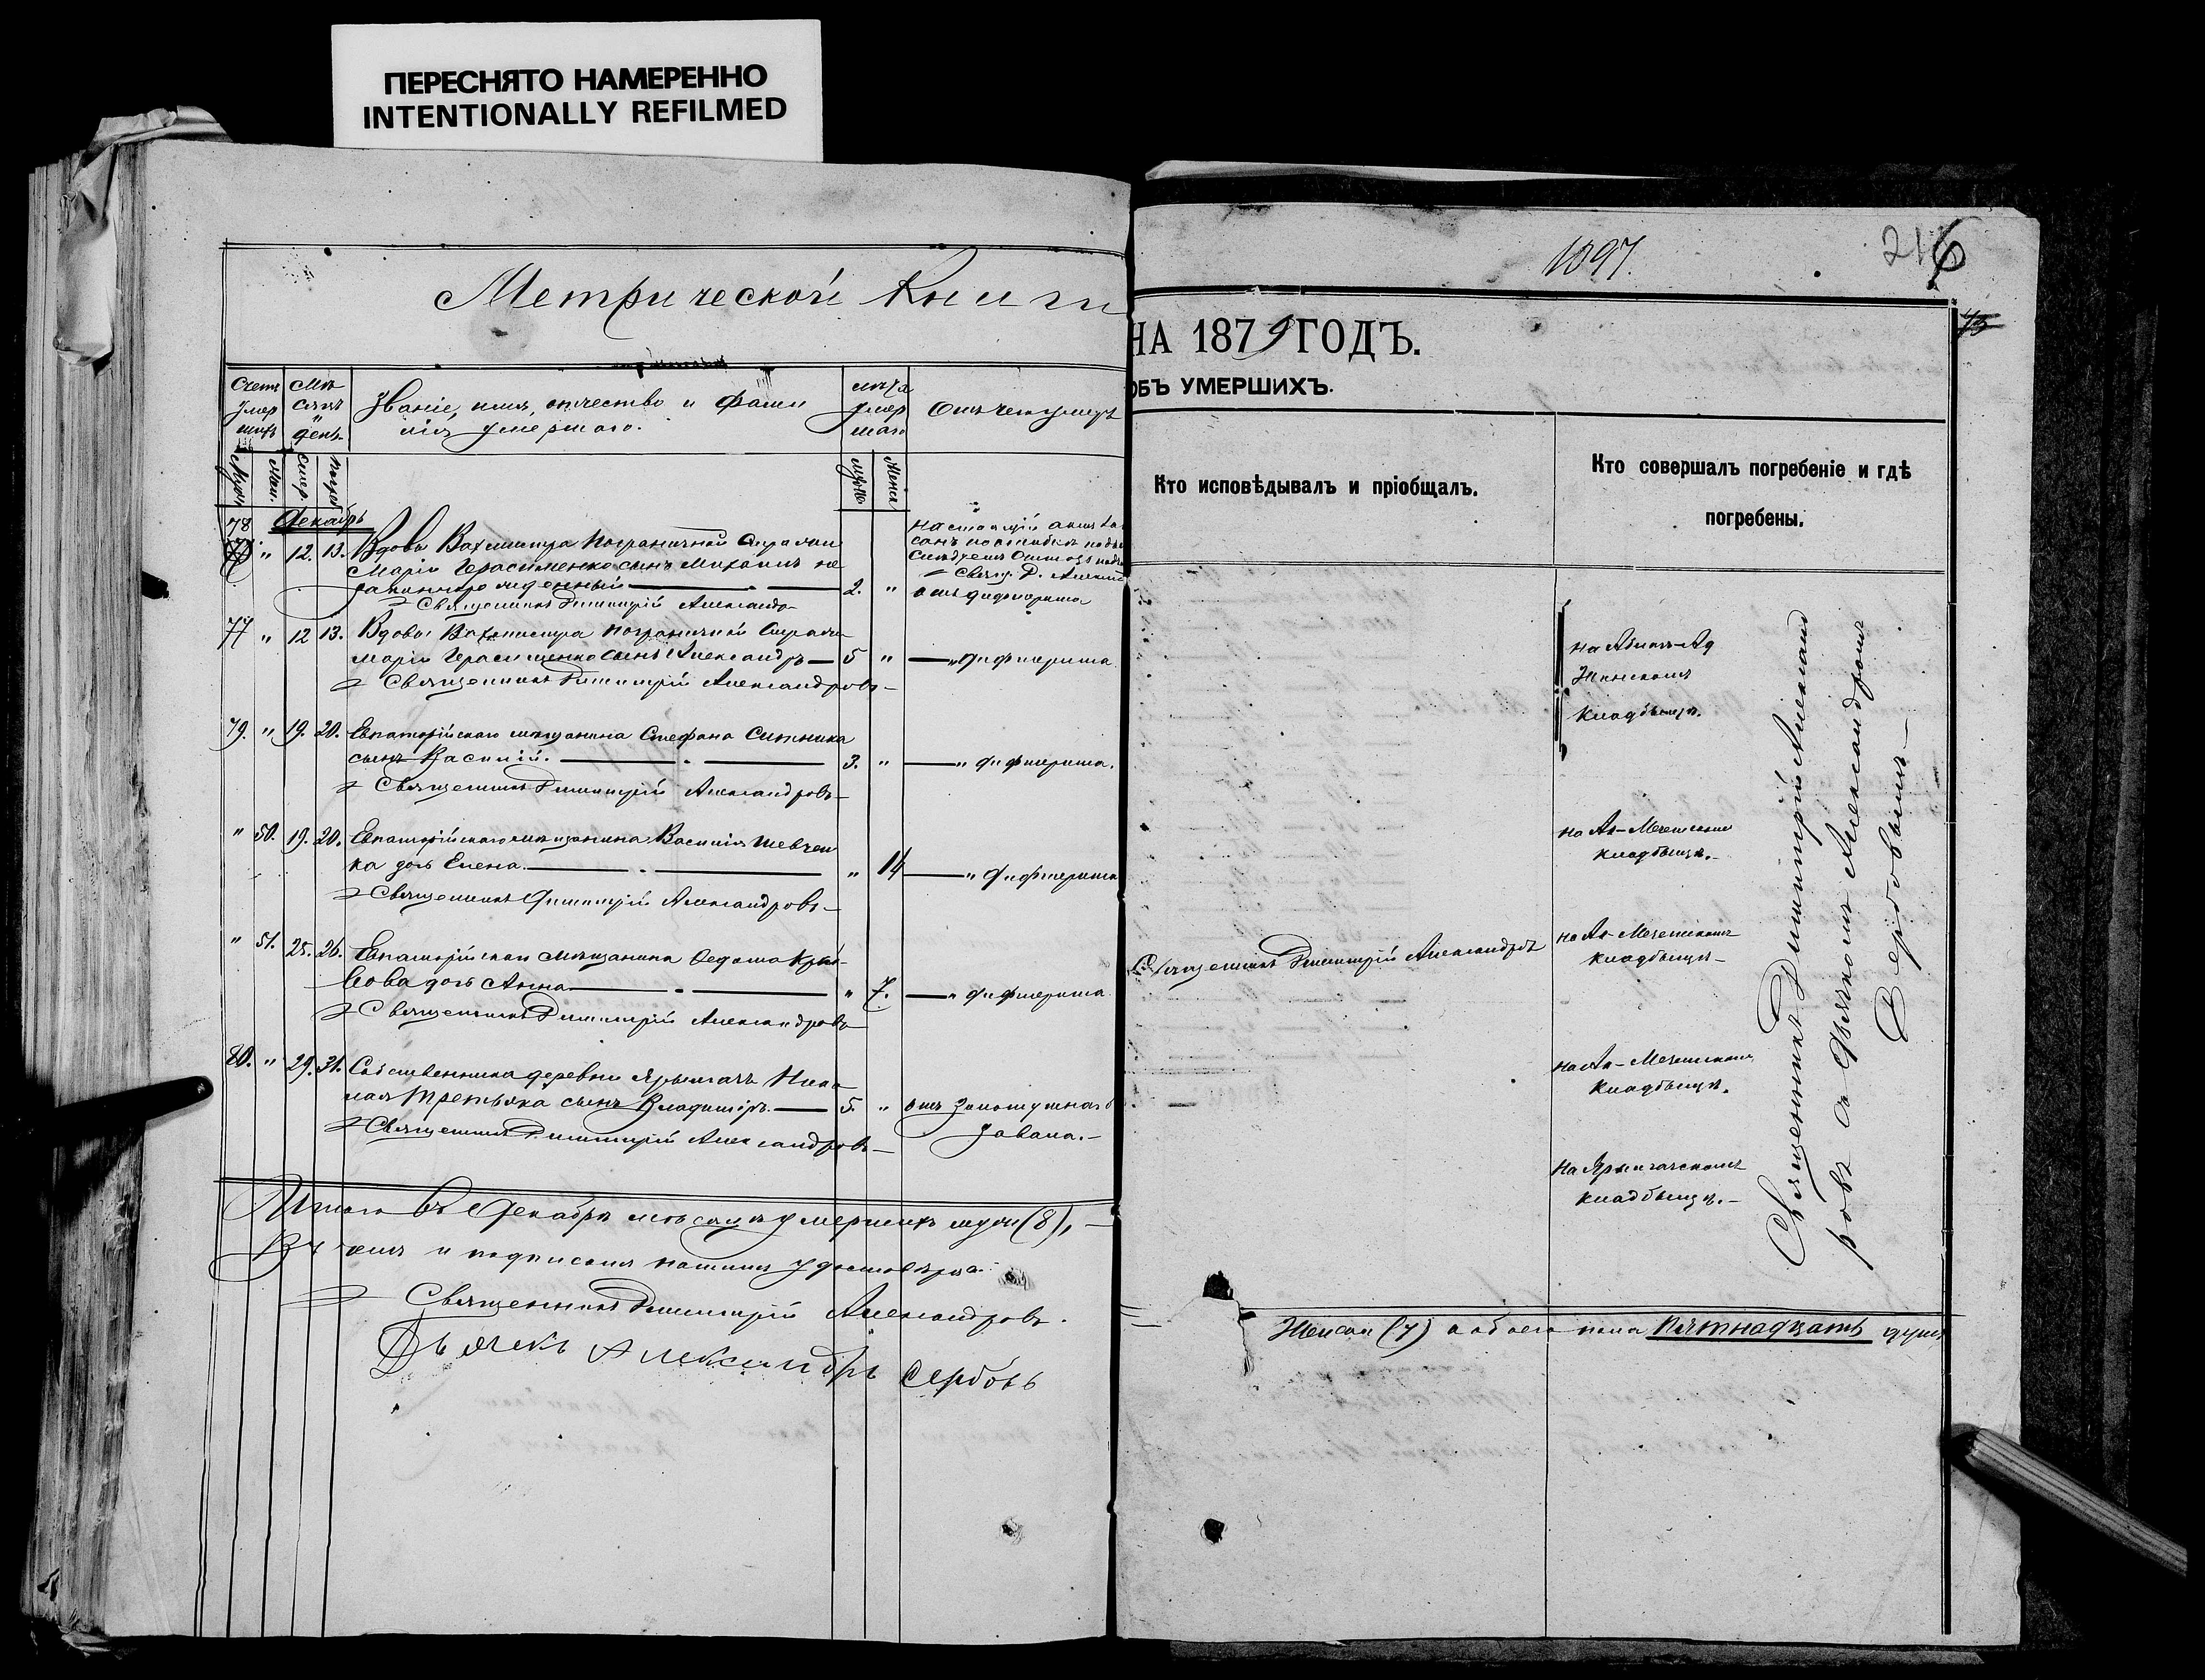 ПЕРЕСНЯТО НАМЕРЕННО
INTENTIONALLY REFILMED
Метрической Книги
Счетъ умер шихъ
Мѣ сяцъ и день
Званіе, имя, отчество и фами
лія умершаго.
лѣта умер шаго
Отъ чего умеръ
Муж. Жен. Смер. Погреб.
Мужс. Женск.
Декабрь
78 " 12. 13. Вдовы Вахмистра Пограничной Стражи
Маріи Герасименко сынъ Михаилъ не
законнорожденный 2. " отъ дифтерита
Священникъ Димитрій Александро
Свящ. Д. Александ
77 " 12 13. Вдовы Вахмистра пограничной Стражи
Маріи Герасименко сынъ Александръ 5 " " дифтерита
Священникъ Димитрій Александровъ
79. " 19. 20. Евпаторійскаго мѣщанина Стефана Ситника
сынъ Василій. 3. " " дифтерита.
Священникъ Димитрій Александровъ
" 50. 19. 20. Евпаторійскаго мѣщанина Василія Шевчен
ка дочь Елена. " 14 " дифтерита
Священникъ Димитрій Александровъ
" 51. 25. 26. Евпаторійскаго мѣщанина Федота
дочь Анна " 7. " дифтерита
Священникъ Димитрій Александровъ
80. " 29. 31. Собственника деревни Ярылгачъ Нико
лая Третьяка сынъ Владиміръ. 5. " отъ Золотушнаго
Священникъ Димитрій Александровъ
Итого въ Декабрѣ мѣсяцѣ умершихъ муж (8),
и подписомъ нашимъ удостовѣряемъ
Священникъ Димитрій Александровъ.
Дьячекъ Александръ Сербовъ
1097.
216
НА 1879 ГОДЪ.
43
ОБЪ УМЕРШИХЪ.
Кто исповѣдывалъ и пріобщалъ.
Кто совершалъ погребеніе и гдѣ
погребены.
кладбищѣ.
на Ак-Мечетскомъ
кладбищѣ.
Священникъ Димитрій Александръ
на Ак-Мечетскомъ
кладбищѣ
на Ак-Мечетскомъ
кладбищѣ.
на Ярылгачскомъ
кладбищѣ.
Священникъ Димитрій Александ
ровъ съ Дьячкомъ Александромъ
Сербовымъ
Женск (7) а обоего пола Пятнадцать душъ